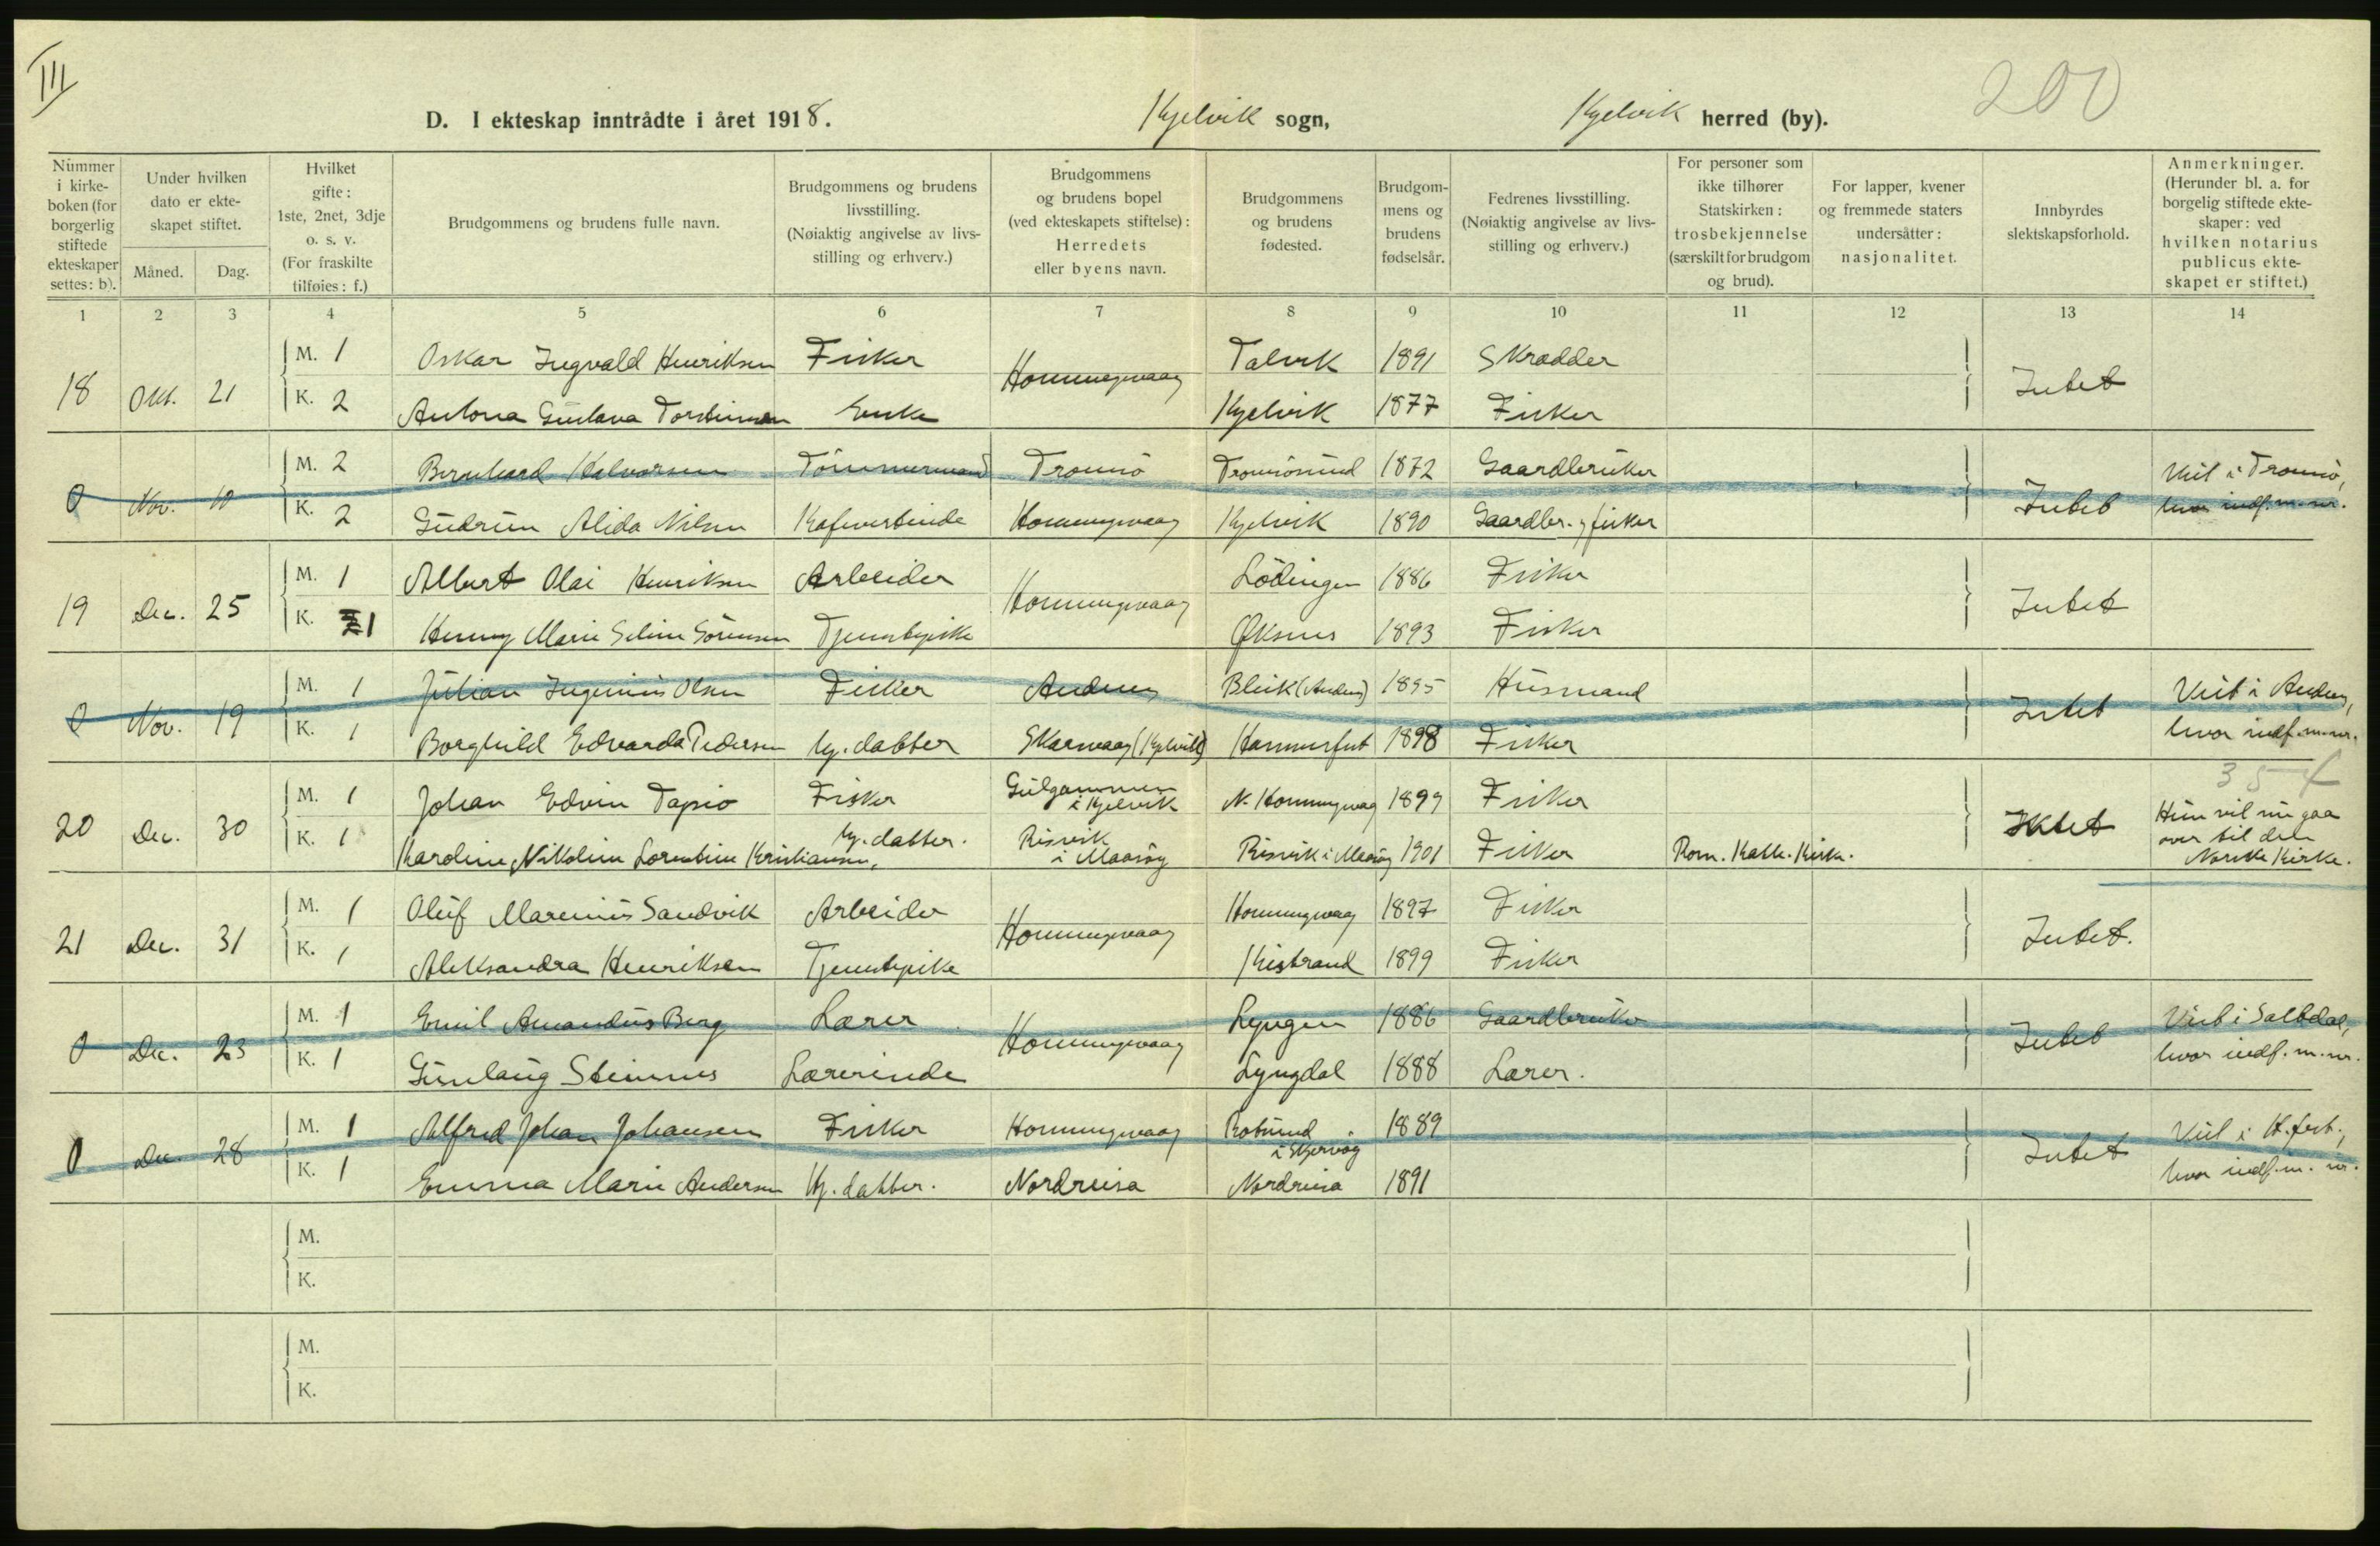 III
200
D. I ekteskap inntrådte i året 1918. Kjelvik sogn, Kjelvik herred (by).
Nummer i kirke- boken (for borgerlig stiftede ekteskaper settes: b).
Under hvilken dato er ekte- skapet stiftet.
Måned. Dag.
Hvilket gifte: 1ste, 2net, 3dje o. s. v. (For fraskilte tilføies: f.)
Brudgommens og brudens fulle navn.
Brudgommens og brudens livsstilling. (Nøiaktig angivelse av livs- stilling og erhverv.)
Brudgommens og brudens bopel (ved ekteskapets stiftelse): Herredets eller byens navn.
Brudgommens og brudens fødested.
Brudgom- mens og brudens fødselsår.
Fedrenes livsstilling. (Nøiaktig angivelse av livs- stilling og erhverv.)
For personer som ikke tilhører Statskirken: trosbekjennelse (særskilt for brudgom og brud).
For lapper, kvener og fremmede staters undersåtter: nasjonalitet.
Innbyrdes slektskapsforhold.
Anmerkninger. (Herunder bl. a. for borgelig stiftede ekte- skaper: ved hvilken notarius publicus ekte- skapet er stiftet.)
1 2 3 4 5 6 7 8 9 10 11 12 13 14
M. 1 Oskar Ingvald Henriksen Fisker Talvik 1891 Skrædder
18 Okt. 21 Honningsvaag Intet
K. 2 Antona Gustava Torstensen Enke Kjelvik 1877 Fisker
M. 2 Bernhard Halvorsen Tömmermand Tromsö Tromsösund 1872 Gaardbruker Viet i Tromsö,
0 Nov. 10 Intet hvor indf. m. nr.
K. 2 Gudrun Alida Nilsen Kafevertinde Honningsvaag Kjelvik 1890 Gaardbr. og fisker
M. 1 Albert Olai Henriksen Arbeider Lödingen 1886 Fisker
19 Dec. 25 Honningsvaag Intet
K. 1 Henny Marie Seline Sörensen Tjenestepike Øksnes 1893 Fisker
M. 1 Julian Ingenius Olsen Fisker Andenes Bleik (Andenes) 1895 Husmand Viet i Andenes,
0 Nov. 19 Intet hvor indf. m. nr.
K. 1 Borghild Edvarda Pedersen hj. datter Skarsvaag (Kjelvik) Hammerfest 1898 Fisker
354
M. 1 Johan Edvin Tapio Fisker Gulgammen i Kjelvik N. Honningsvaag 1899 Fisker
20 Dec. 30 Intet Hun vil nu gaa over til den Norske Kirke.
K. 1 Karoline Nikoline Lorentine Kristiansen, hj. datter. Risvik i Maasöy Risvik i Maasöy 1901 Fisker Rom. Kath. Kirke.
M. 1 Oluf Marenius Sandvik Arbeider Honningsvaag 1897 Fisker
21 Dec. 31 Honningsvaag Intet.
K. 1 Aleksandra Henriksen Tjenestepike Kistrand 1899 Fisker
M. 1 Emil Amandus Berg Lærer Lyngen 1886 Gaardbruker Viet i Saltdal,
0 Dec. 23 Honningsvaag Intet hvor indf. m. nr.
K. 1 Gunlaug Steinnes Lærerinde Lyngdal 1888 Lærer.
M. 1 Alfred Johan Johansen Fisker Honningsvaag Rotsund i Skjervöy 1889 Viet i H.fest.,
0 Dec. 28 Intet hvor indf. m. nr.
K. 1 Emma Marie Andersen Hj. datter. Nordreisa Nordreisa 1891
M.
K.
M.
K.